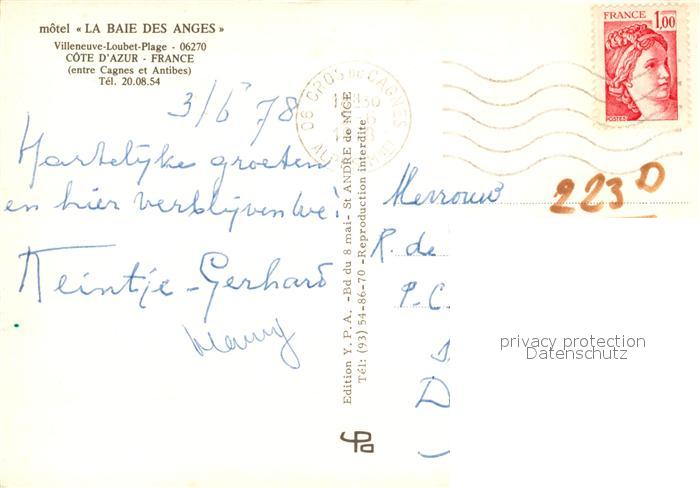 môtel « LA BAIE DES ANGES »
Villeneuve-Loubet-Plage - 06270
CÔTE D'AZUR - FRANCE
(entre Cagnes et Antibes)
Tél. 20.08.54
3/6 78
Hartelijke groeten
en hier verblijven we!
Reintje - Gerhard
Edition Y. P. A. -Bd du 8 mai- St ANDRE de NICE
Tél: (93) 54-86-70 -Reproduction interdite
06 CROS DE CAGNES
FRANCE
1,00
POSTES
2230
Mevrouw
R. de
P.C.
D
privacy protection
Datenschutz